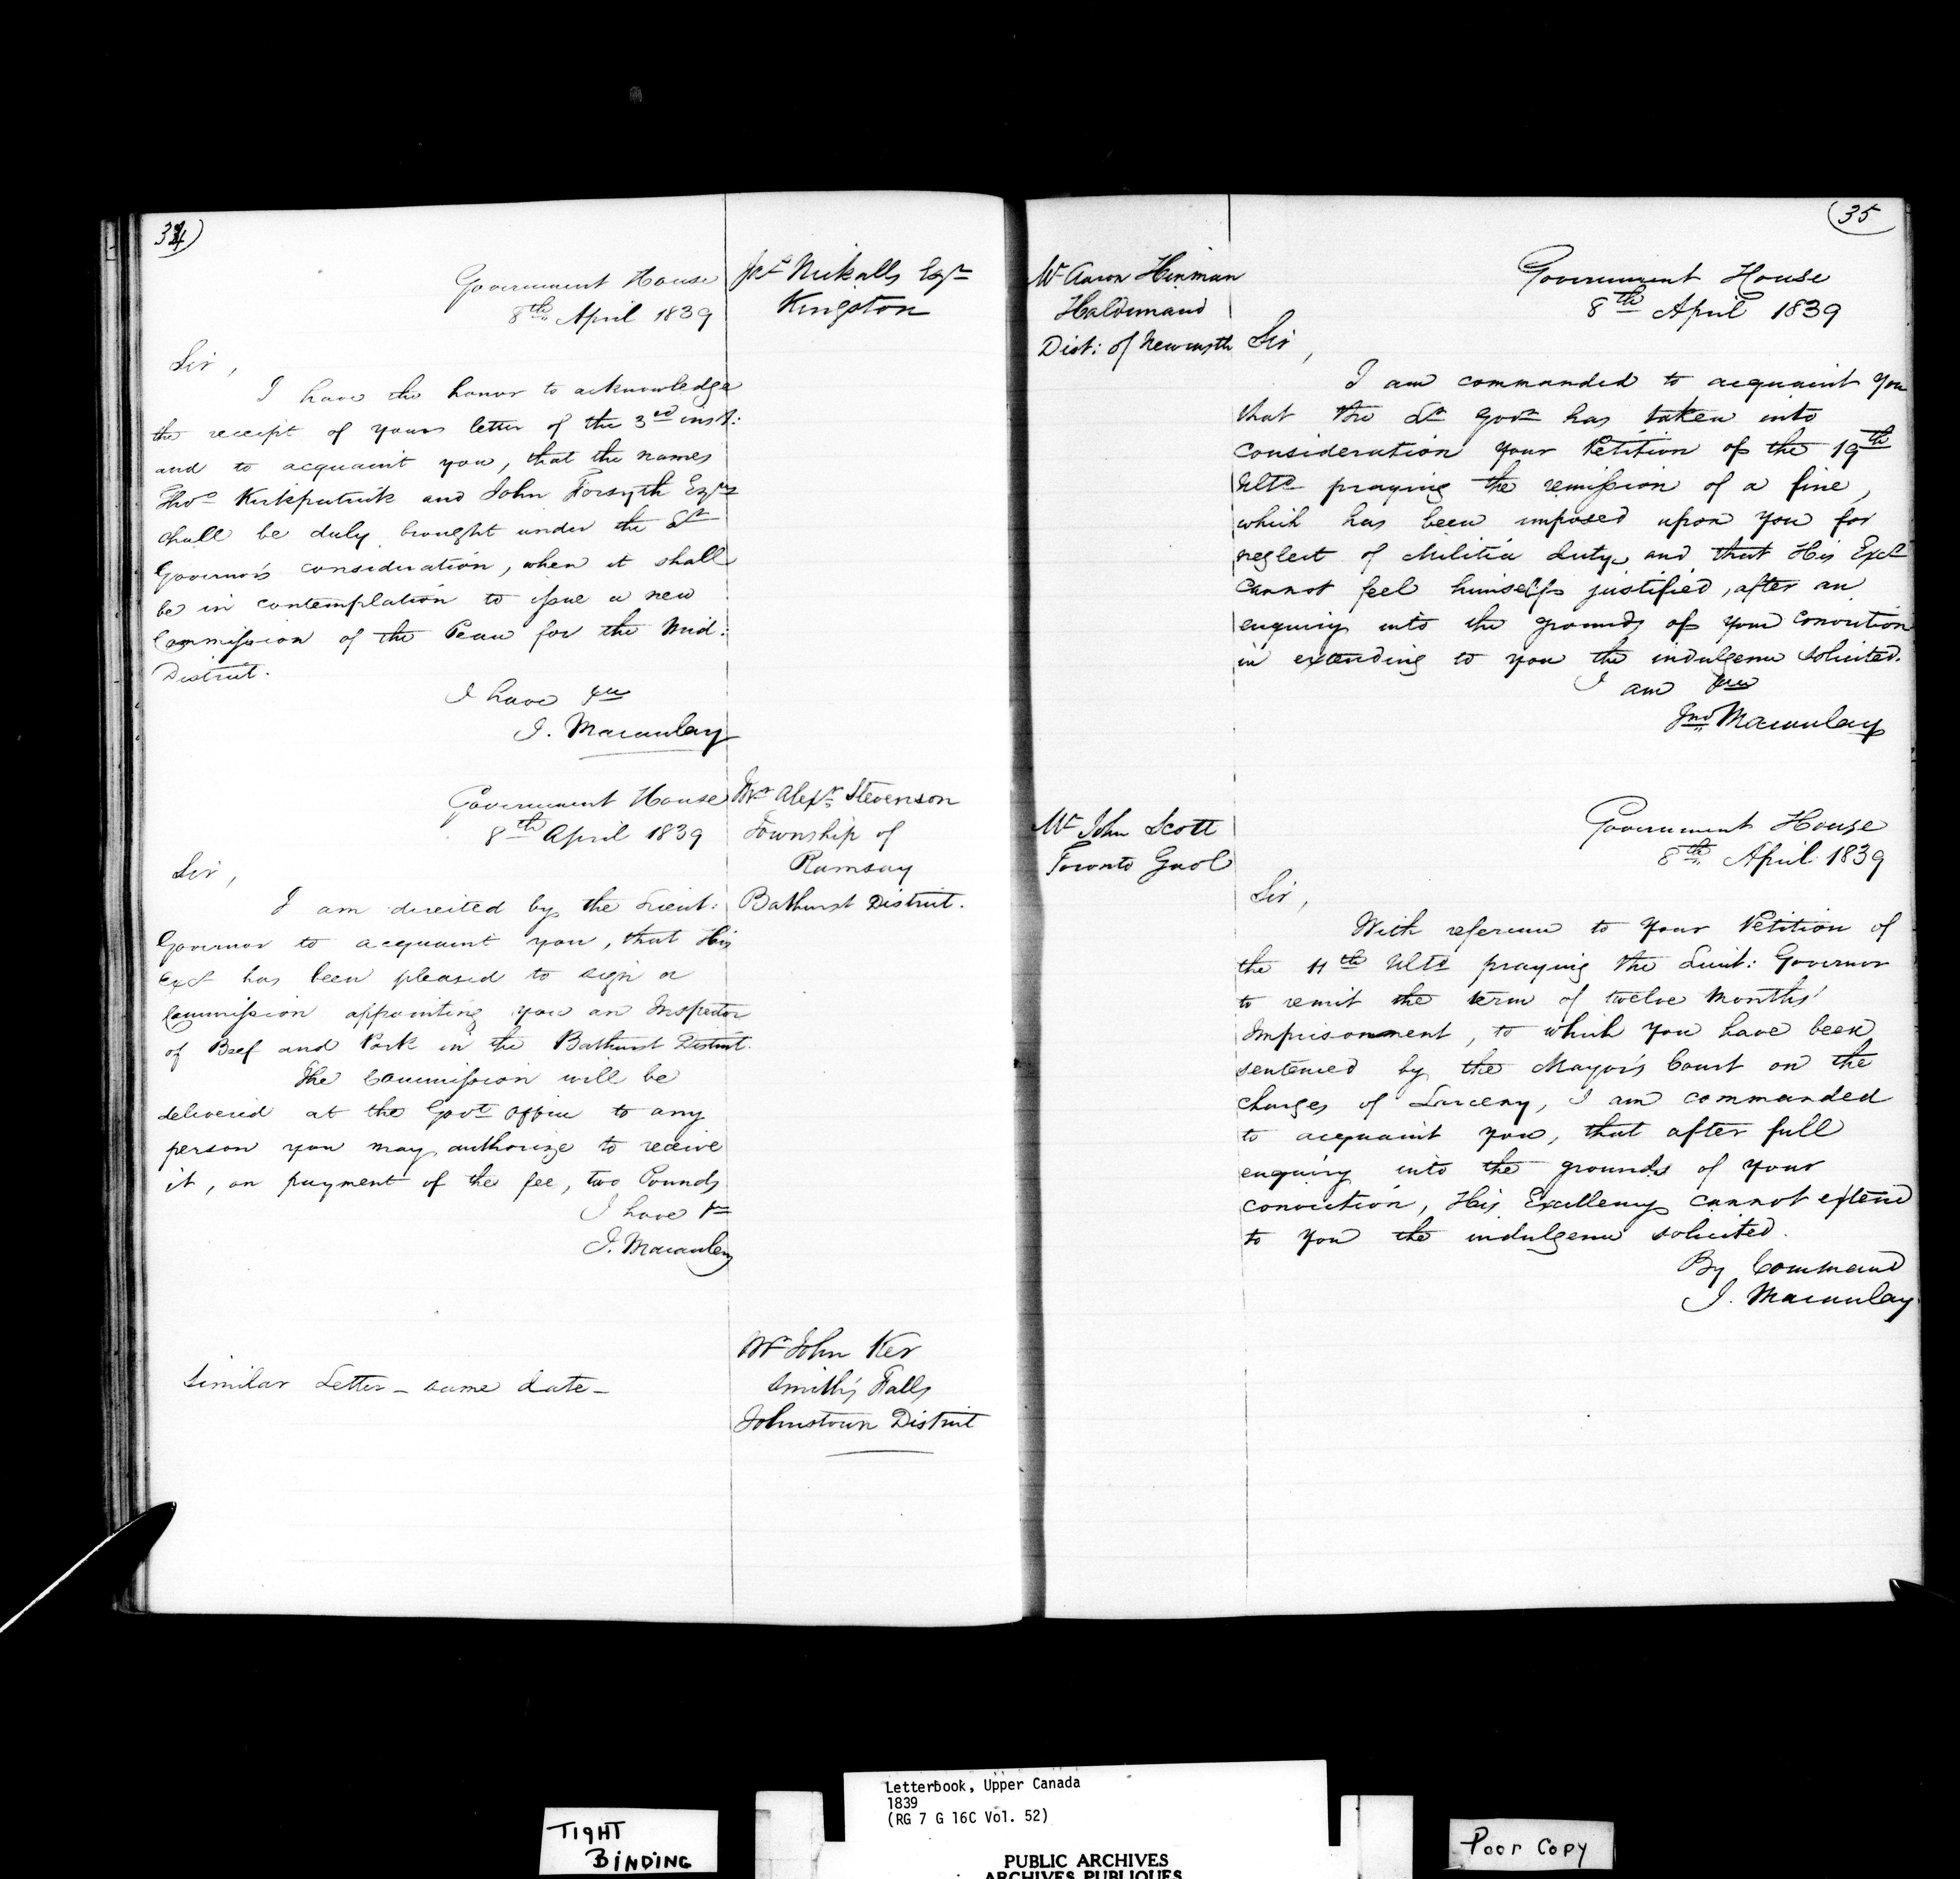 34)
Government House
8th April 1839
Jas Nickalls Esqr
Kingston
Sir,
I have the honor to acknowledge
the receipt of your letter of the 3rd inst:
and to acquaint you, that the names
Thos Kirkpatrick and John Forsyth Esqrs
shall be duly brought under the Lt
Governor's consideration, when it shall
be in contemplation to issue a new
Commission of the Peace for the Mid:
District.
I have &c
J. Macaulay
Government House
8th April 1839
Mr Alexr Stevenson
Township of
Ramsay
Bathurst District.
Sir,
I am directed by the Lieut:
Governor to acquaint you, that His
Exct has been pleased to sign a
Commission appointing you an Inspector
of Beef and Pork in the Bathurst District.
The Commission will be
delivered at the Govt Office to any
person you may authorize to receive
it, on payment of the fee, two Pounds
I have &c
J. Macaulay
Similar Letter – same date –
Mr John Ker
Smith's Falls
Johnstown District
(35
Mr Aaron Hinman
Haldimand
Dist: of Newcastle
Government House
8th April 1839
Sir,
I am commanded to acquaint you
that the Lt Govr has taken into
consideration your Petition of the 19th
Ulto praying the remission of a fine,
which has been imposed upon you for
neglect of Militia duty, and that His Exct
cannot feel himself justified, after an
enquiry into the grounds of your conviction
in extending to you the indulgence solicited.
I am &c
Jno Macaulay
Mr John Scott
Toronto Gaol
Government House
8th April 1839
Sir,
With reference to your Petition of
the 11th Ulto praying the Lieut: Governor
to remit the term of twelve Months'
Imprisonment, to which you have been
sentenced by the Mayor's Court on the
charges of Larceny, I am commanded
to acquaint you, that after full
enquiry into the grounds of your
conviction, His Excellency cannot extend
to you the indulgence solicited.
By Command
J. Macaulay
TIGHT
BINDING
Letterbook, Upper Canada
1839
(RG 7 G 16C Vol. 52)
PUBLIC ARCHIVES
ARCHIVES PUBLIQUES
Poor Copy